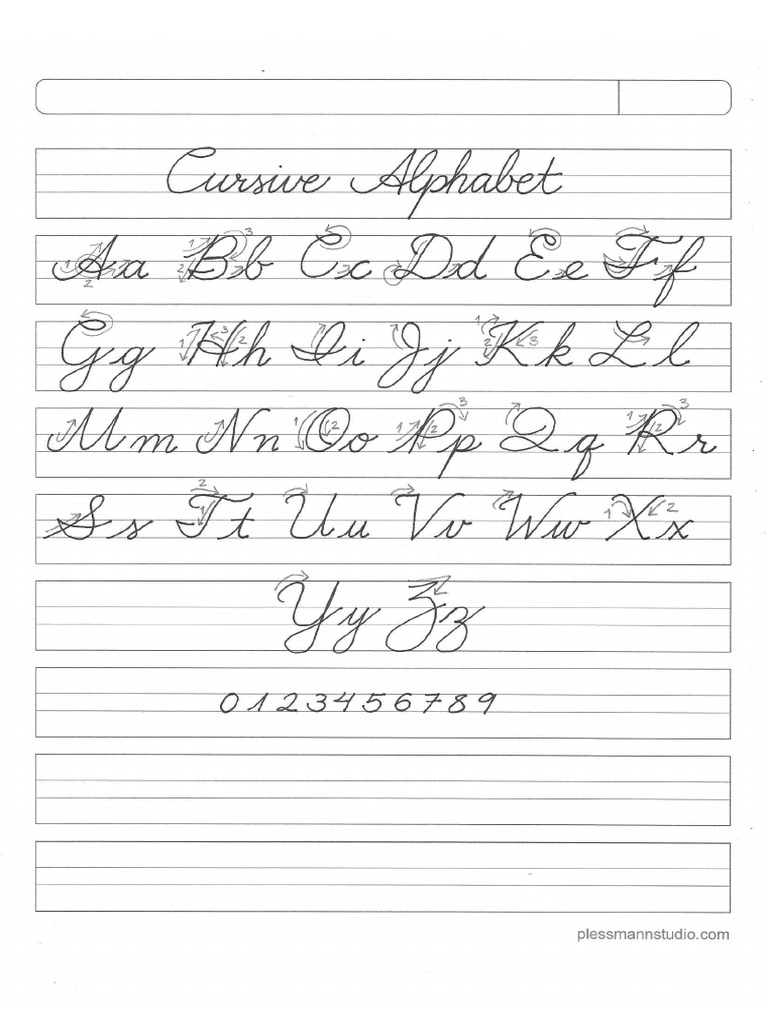 Cursive Alphabet
Aa Bb Cc Dd Ee Ff
Gg Hh Ii Jj Kk Ll
Mm Nn Oo Pp Qq Rr
Ss Tt Uu Vv Ww Xx
Yy Zz
0 1 2 3 4 5 6 7 8 9
plessmannstudio.com